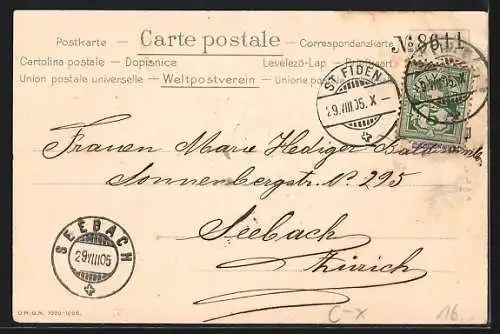 Postkarte — Carte postale — Correspondenzkarte № 8611
Cartolina postale — Dopisnice Levelező-Lap —
Union postale universelle — Weltpostverein — Unione
ST. FIDEN
29.VIII.05.X
Frauen Marie Hediger
Sonnenbergstr. No. 295
Seebach
Zürich
SEEBACH
29VIII05
C-X
16.